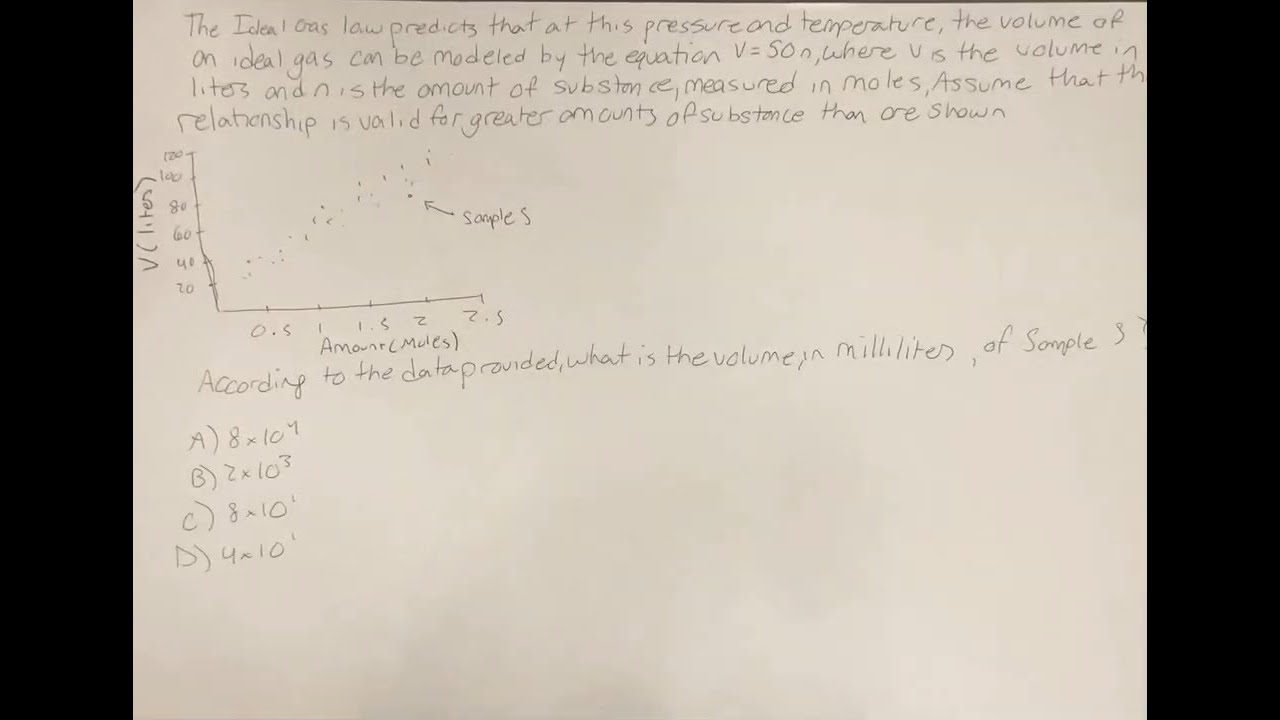 The Ideal Gas law predicts that at this pressure and temperature, the volume of
an ideal gas can be modeled by the equation V=50n, where V is the volume in
liters and n is the amount of substance, measured in moles, Assume that th
relationship is valid for greater amounts of substance than are shown
120
100
80
60
40
20
V (liters)
Sample S
0.5 1 1.5 2 2.5
Amount (Moles)
According to the data provided, what is the volume, in milliliters, of Sample S?
A) 8×10⁴
B) 2×10³
C) 8×10¹
D) 4×10¹